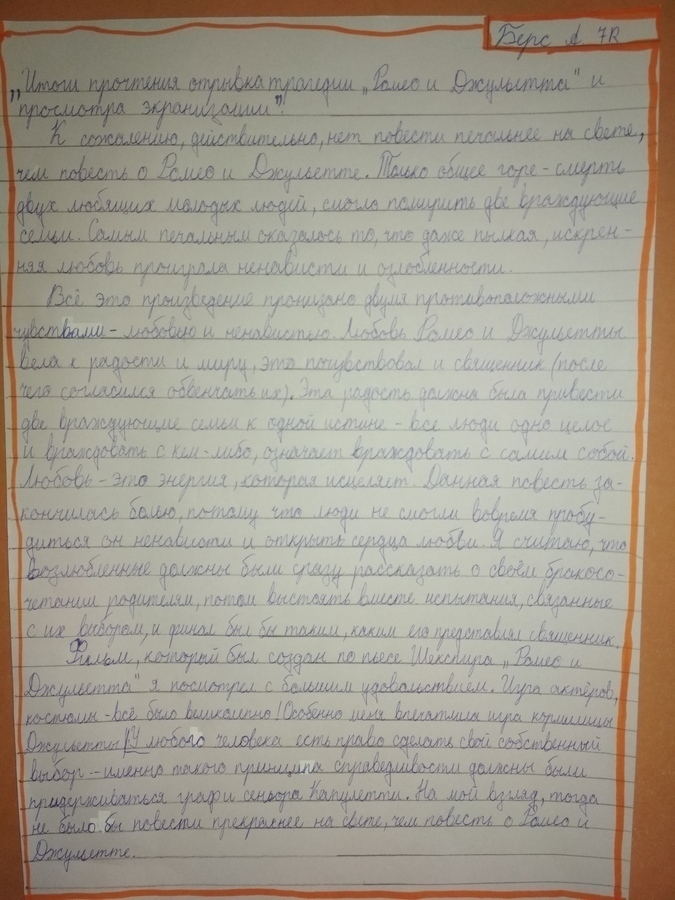 Берс А 7R
„Итоги прочтения отрывка трагедии „Ромео и Джульетта" и
просмотра экранизации".
К сожалению, действительно, нет повести печальнее на свете,
чем повесть о Ромео и Джульетте. Только общее горе - смерть
двух любящих молодых людей, смогло помирить две враждующие
семьи. Самым печальным оказалось то, что даже пылкая, искрен-
няя любовь проиграла ненависти и озлобенности.
Всё это произведение пронизано двумя противоположными
чувствами - любовью и ненавистью. Любовь Ромео и Джульетты
вела к радости и миру, это почувствовал и священник (после
чего согласился обвенчать их). Эта радость должна была привести
две враждующие семьи к одной истине - все люди одно целое
и враждовать с кем-либо, означает враждовать с самим собой.
Любовь - это энергия, которая исцеляет. Данная повесть за-
кончилась болью, потому что люди не смогли вовремя пробу-
диться он ненависти и открыть сердца любви. Я считаю, что
возлюбленные должны были сразу рассказать о своём бракосо-
четании родителям, потом выстоять вместе испытания, связанные
с их выбором, и финал был бы таким, каким его представлял священник.
Фильм, который был создан по пьесе Шекспира „Ромео и
Джульетта" я посмотрел с большим удовольствием. Игра актёров,
костюмы - всё было великолепно! Особенно меня впечатлила игра кормилицы
Джульетты. У любого человека есть право сделать свой собственный
выбор - именно такого принципа справедливости должны были
придерживаться граф и сеньора Капулетти. На мой взгляд, тогда
не было бы повести прекраснее на свете, чем повесть о Ромео и
Джульетте.